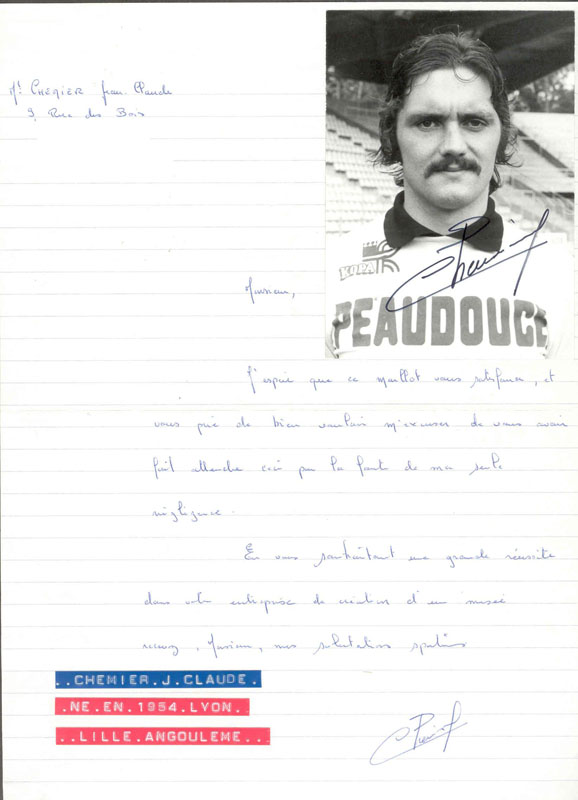 Mr CHEMIER Jean-Claude
9, Rue des Bois
KOPA
PEAUDOUCE
Chemier
Monsieur,
J'espère que ce maillot vous satisfera, et
vous prie de bien vouloir m'excuser de vous avoir
fait attendre ceci par la faute de ma seule
négligence.
En vous souhaitant une grande réussite
dans votre entreprise de création d'un musée
recevez, Monsieur, mes salutations sportives
..CHEMIER.J.CLAUDE.
.NE.EN.1954.LYON.
..LILLE.ANGOULEME..